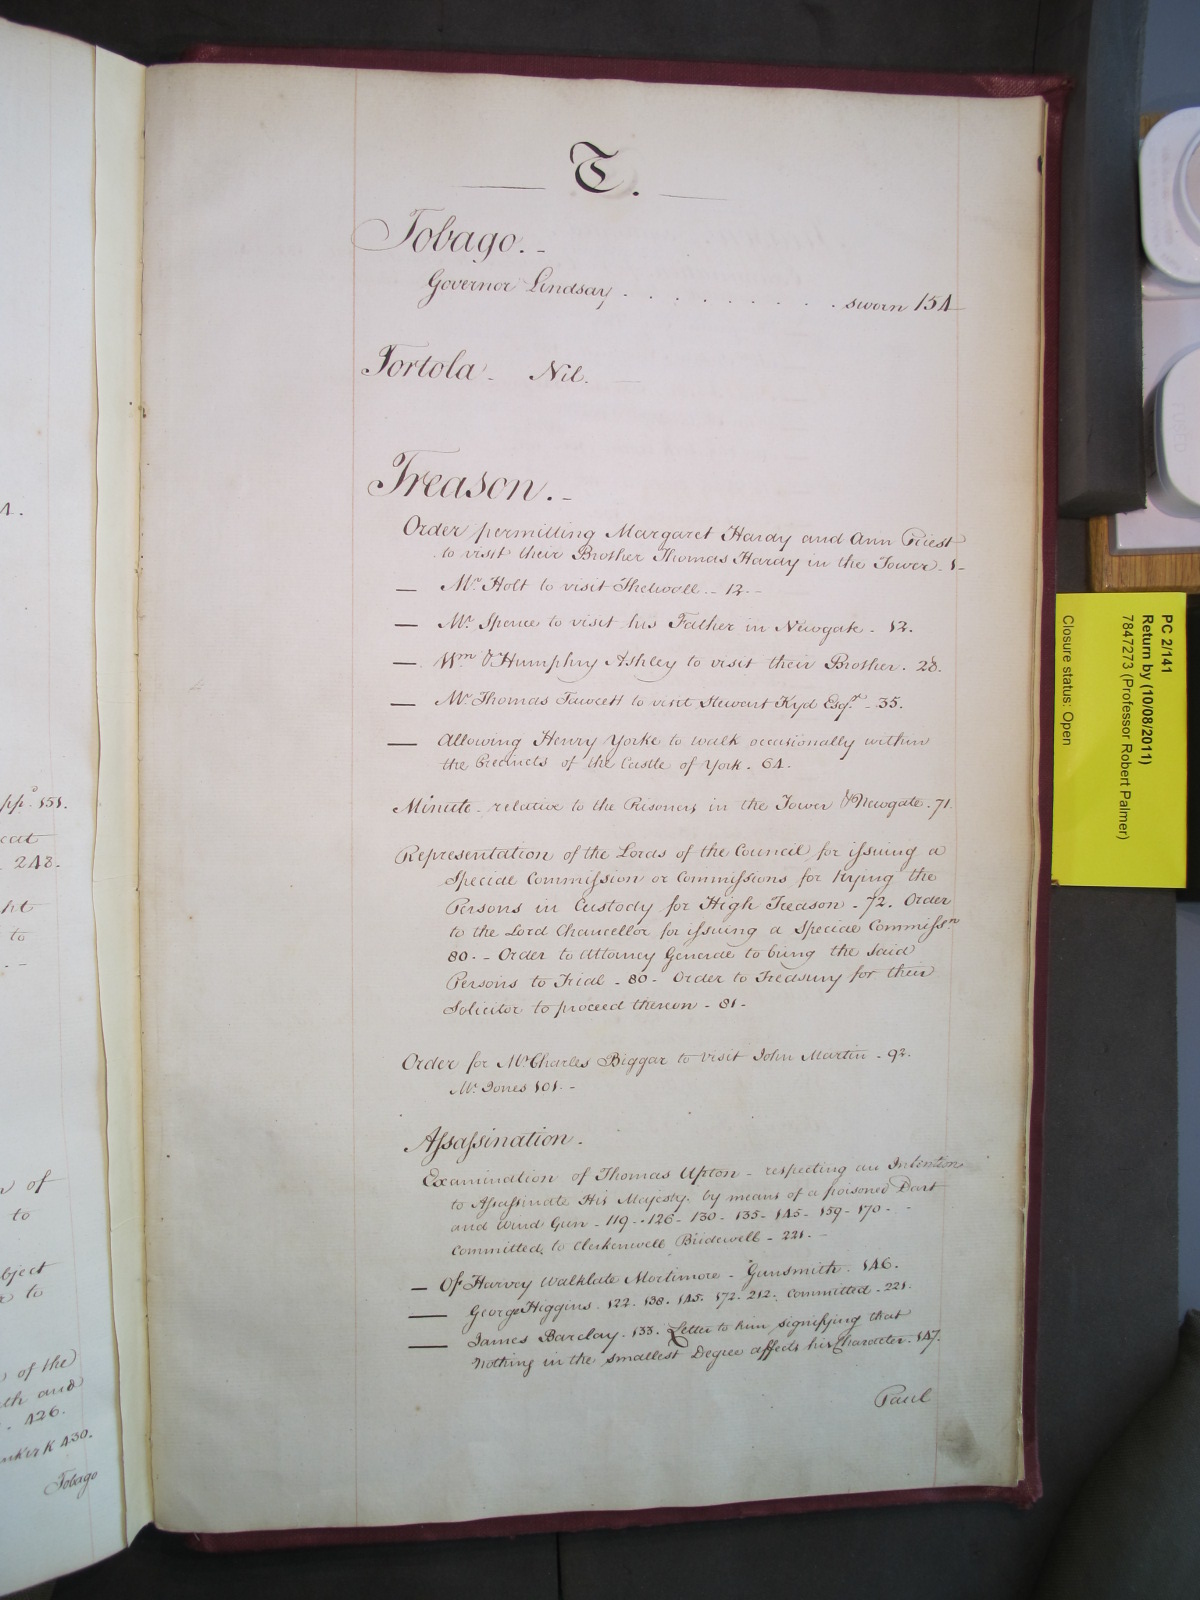 T.
Tobago. -
Governor Lindsay . . . . . . . . . . sworn 154
Tortola - Nil.
Treason. -
Order permitting Margaret Hardy and Ann Priest
to visit their Brother Thomas Hardy in the Tower - 1 -
— Mr. Holt to visit Thelwall - 12 -
— Mr. Spence to visit his Father in Newgate - 12.
— Wm. & Humphry Ashley to visit their Brother. 28.
— Mr. Thomas Fawcett to visit Stewart Kyd Esqr. - 35.
— Allowing Henry Yorke to walk occasionally within
the Precincts of the Castle of York. 64.
Minute - relative to the Prisoners in the Tower & Newgate. 71.
Representation of the Lords of the Council for issuing a
Special Commission or Commissions for trying the
Persons in Custody for High Treason - 72. Order
to the Lord Chancellor for issuing a Special Commissn.
80. - Order to Attorney General to bring the said
Persons to Trial - 80 - Order to Treasury for their
Solicitor to proceed thereon - 81 -
Order for Mr. Charles Biggar to visit John Martin - 92.
Mr. Jones 101. -
Assassination.
Examination of Thomas Upton - respecting an Intention
to Assassinate His Majesty by means of a poisoned Dart
and Wind Gun - 119 - 126 - 130 - 135 - 145 - 159 - 170 - -
Committed to Clerkenwell Bridewell - 221. -
— Of Harvey Walklate Mortimore - Gunsmith. 146.
— George Higgins. 122. 138. 145. 172. 212. Committed - 221.
— James Barclay. 133. Letter to him signifying that
nothing in the smallest Degree affects his Character. 147.
Paul
pp. 151.
248.
to
of
to
bject
to
of the
and
426.
430.
Tobago
PC 2/141
Return by (10/08/2011)
7847273 (Professor Robert Palmer)
Closure status: Open